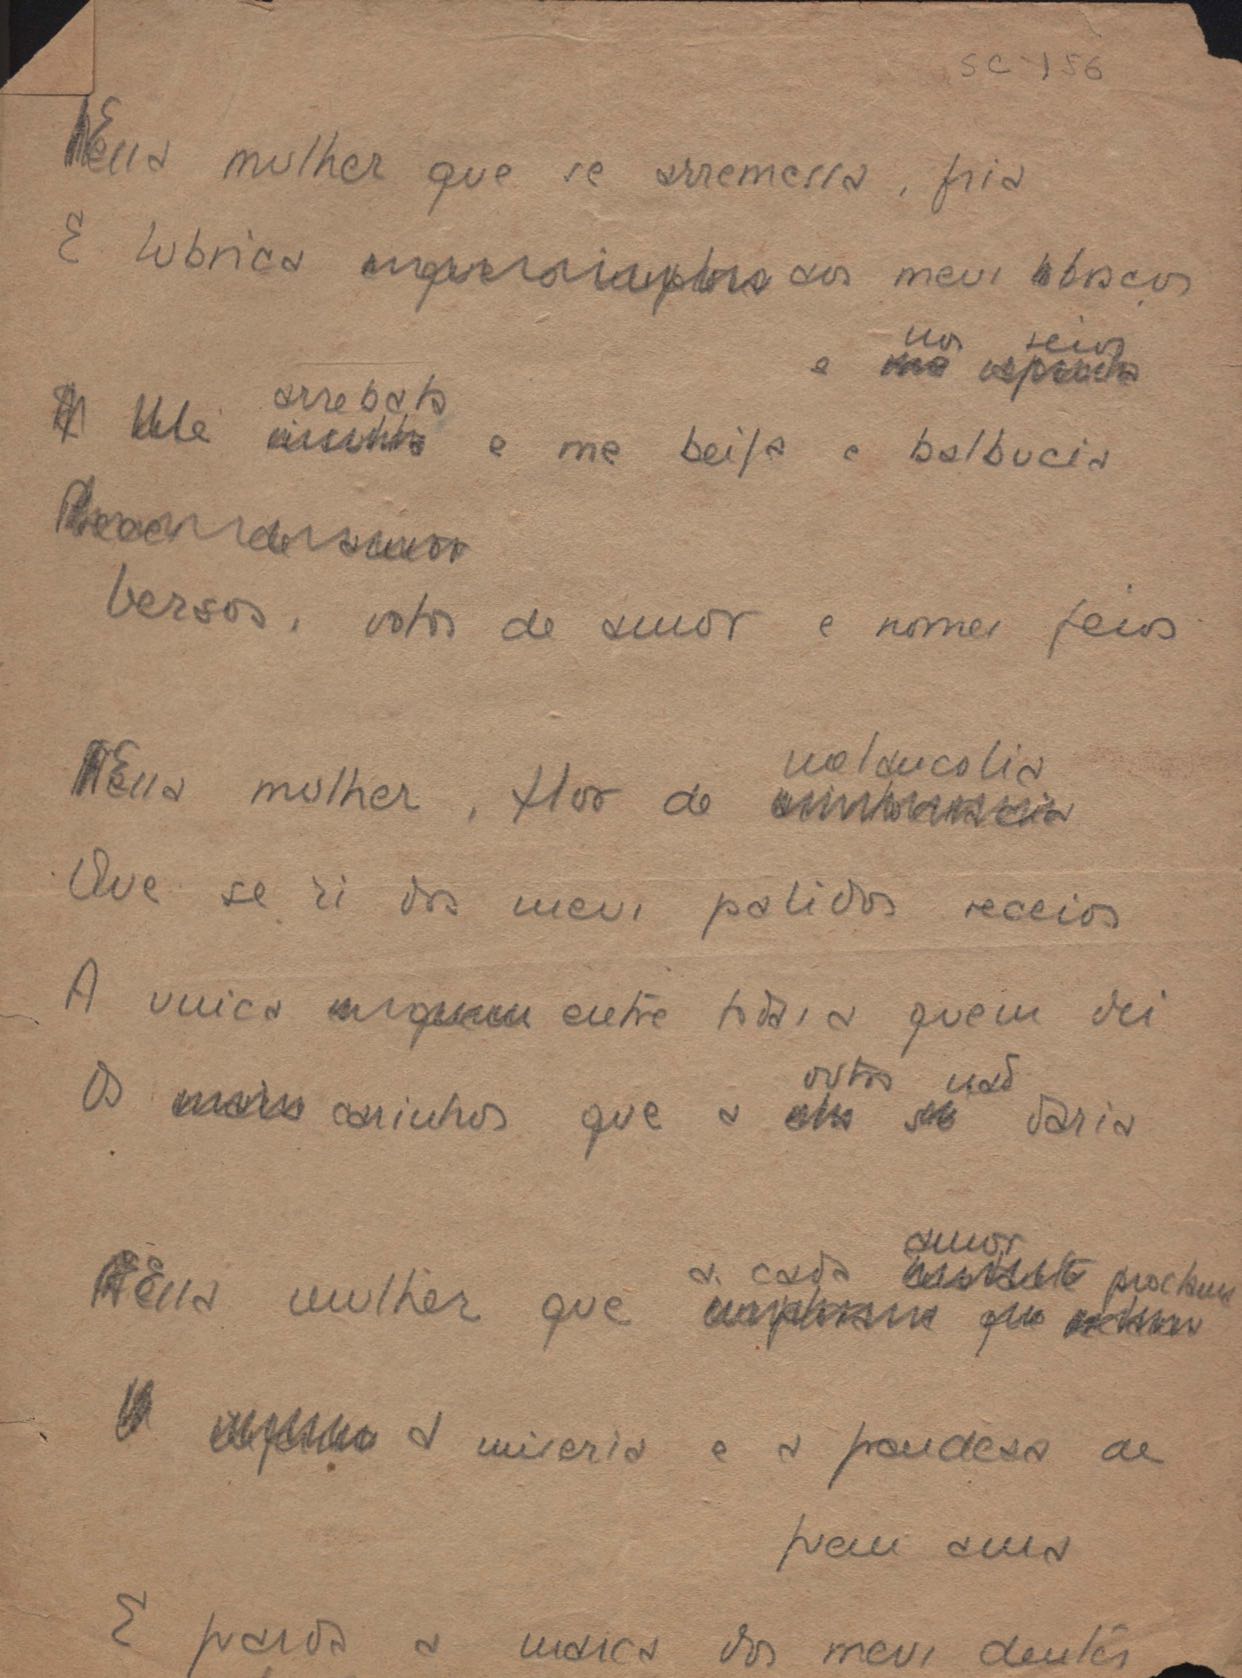 SC-156
Essa mulher que se arremessa, fria
E lubrica aos meus braços
e nos seios
arrebata
Me e me beija e balbucia
Versos, votos de amor e nomes feios
melancolia
Essa mulher, flor de
Que se ri dos meus palidos receios
A unica entre todas a quem dei
outras não
Os carinhos que a daria
amor
a cada proclama
Essa mulher que
A miseria e a grandesa de
quem ama
E guarda a marca dos meus dentes